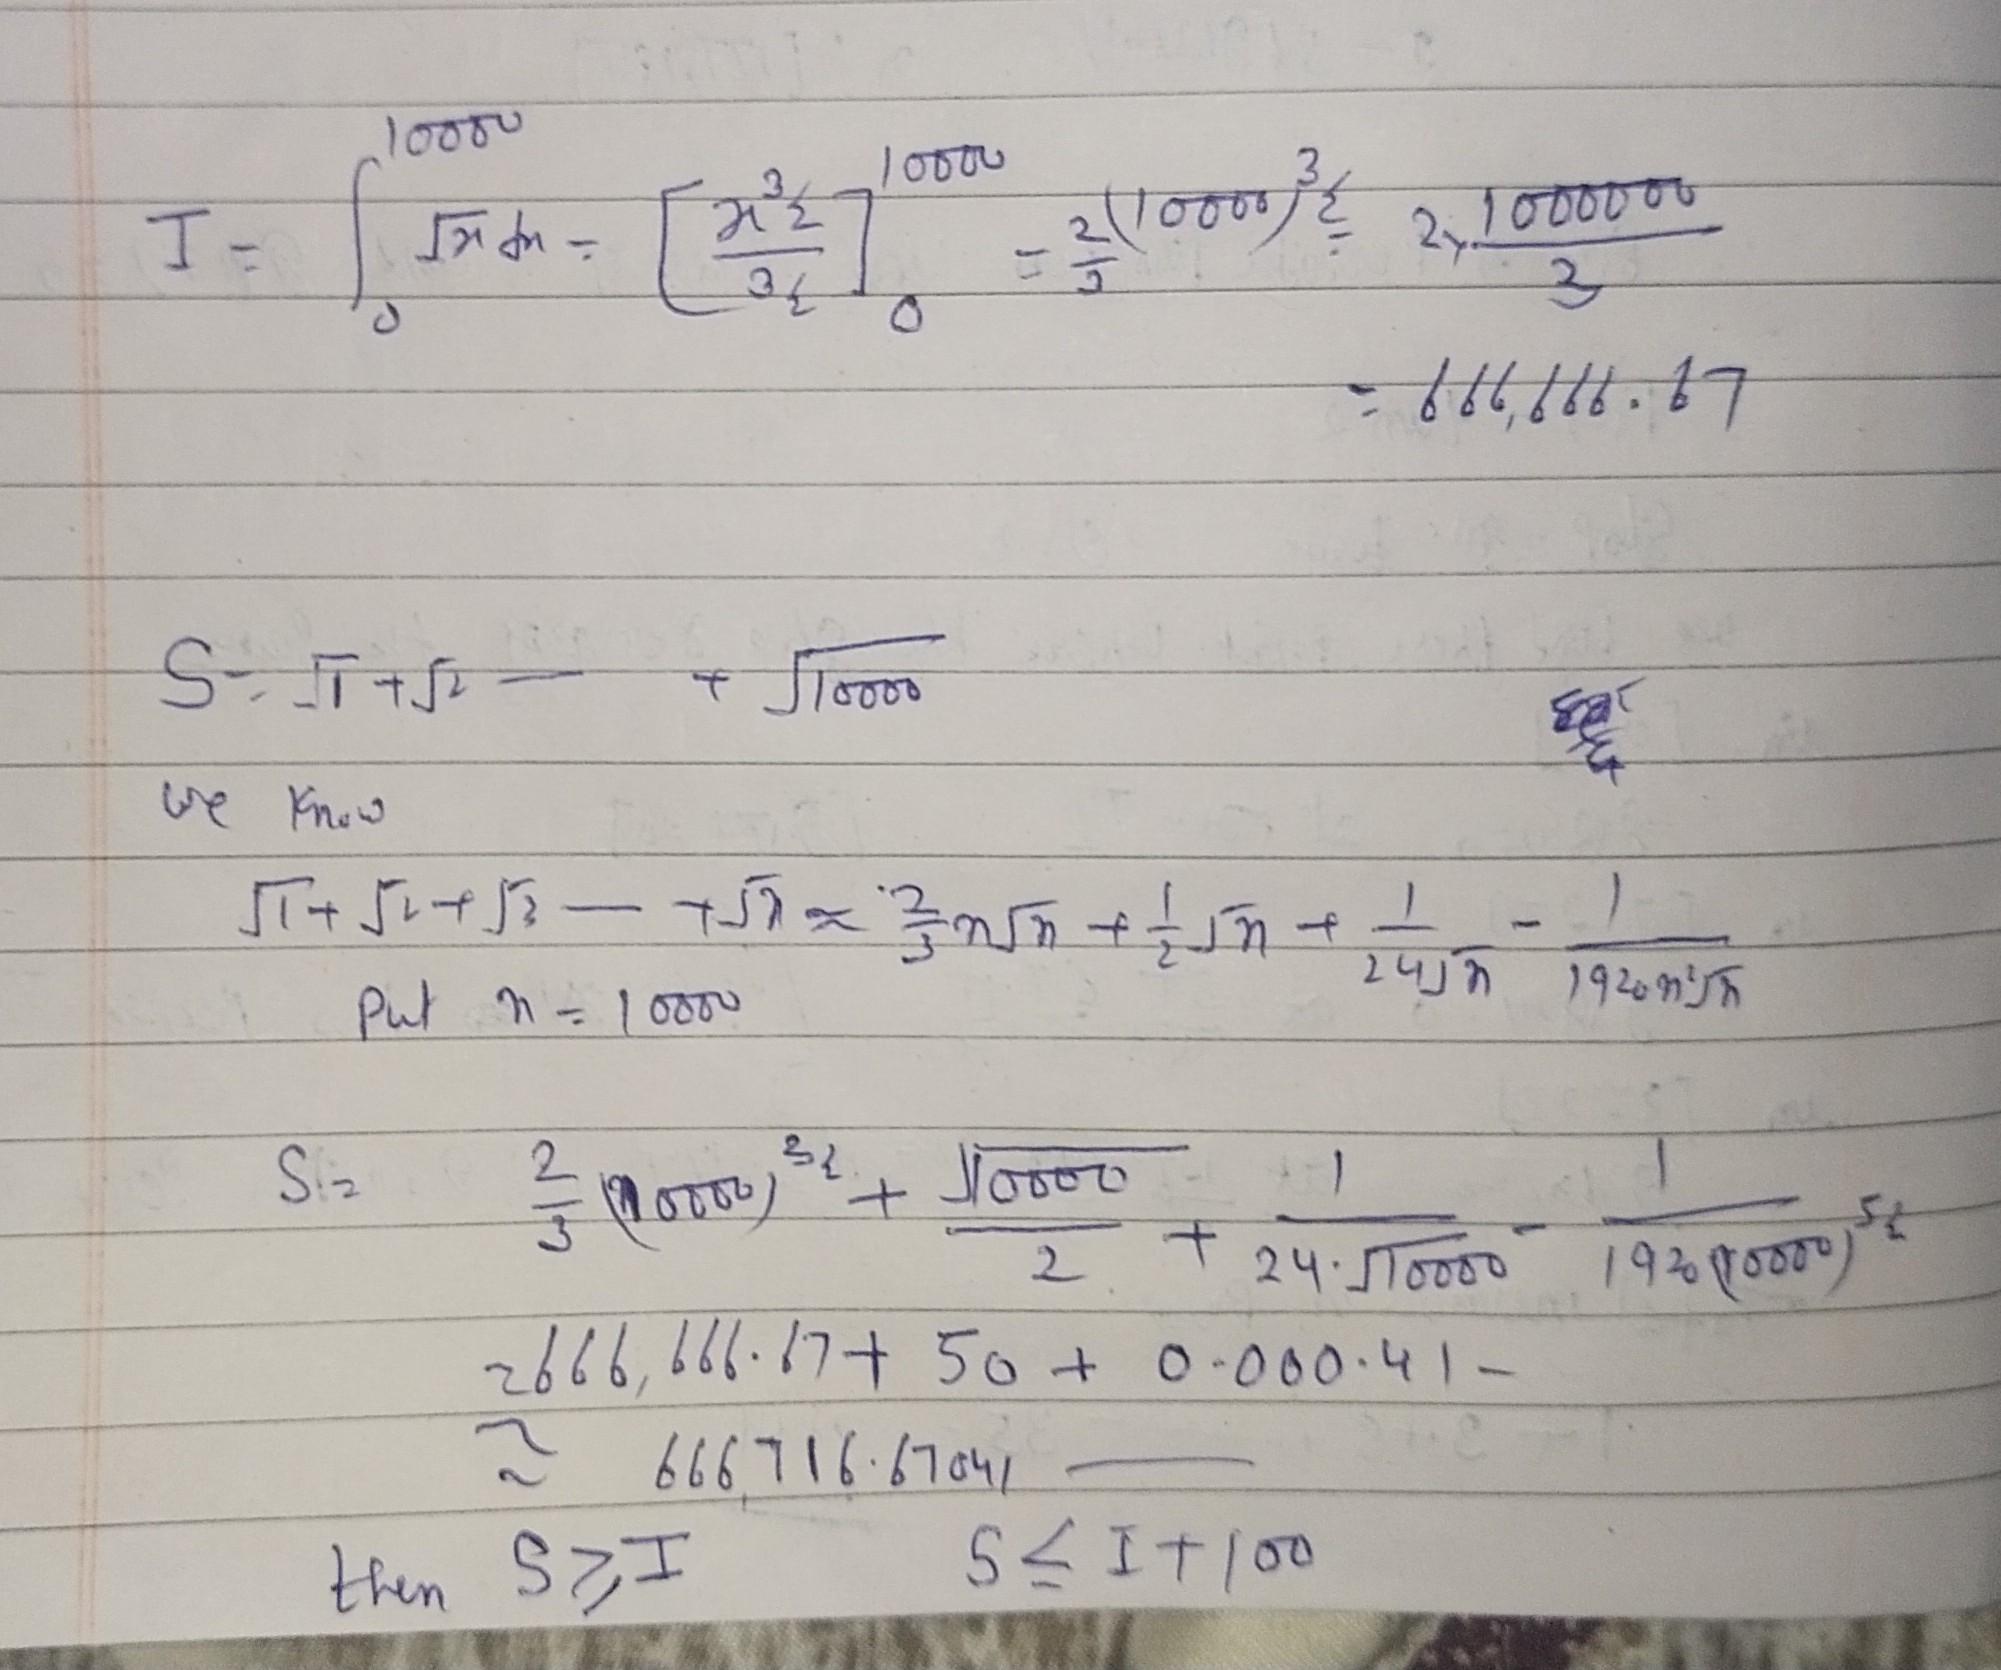 I = ∫₀¹⁰⁰⁰⁰ √x dx = [x^3/2 / 3/2]₀¹⁰⁰⁰⁰ = 2/3 (10000)^3/2 = 2 × 1000000 / 3
= 666,666.67
S = √1 + √2 — + √10000
we know
√1 + √2 + √3 — + √n ≈ 2/3 n√n + 1/2 √n + 1/24√n - 1/1920n²√n
Put n = 10000
S = 2/3 (10000)^3/2 + √10000/2 + 1/24·√10000 - 1/1920(10000)^5/2
= 666,666.67 + 50 + 0.000.41 -
≅ 666,716.67041 —
then S ≥ I S ≤ I + 100